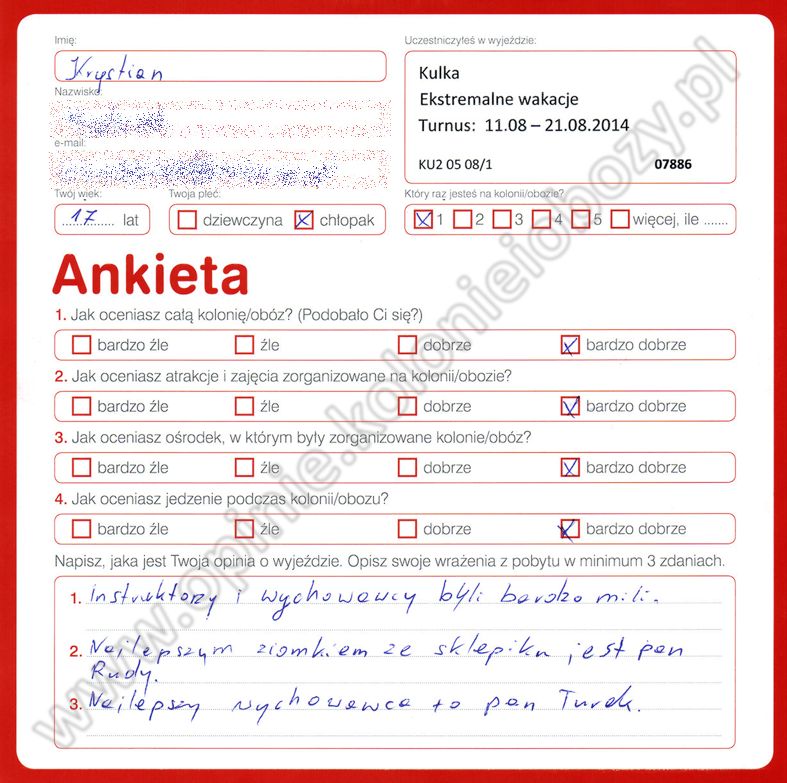 Imię:
Uczestniczyłeś w wyjeździe:
Krystian
Kulka
Ekstremalne wakacje
Turnus: 11.08 – 21.08.2014
KU2 05 08/1 07886
Nazwisko:
e-mail:
Twój wiek: Twoja płeć: Który raz jesteś na kolonii/obozie?
17 lat dziewczyna chłopak 1 2 3 4 5 więcej, ile .......
Ankieta
1. Jak oceniasz całą kolonię/obóz? (Podobało Ci się?)
bardzo źle źle dobrze bardzo dobrze
2. Jak oceniasz atrakcje i zajęcia zorganizowane na kolonii/obozie?
bardzo źle źle dobrze bardzo dobrze
3. Jak oceniasz ośrodek, w którym były zorganizowane kolonie/obóz?
bardzo źle źle dobrze bardzo dobrze
4. Jak oceniasz jedzenie podczas kolonii/obozu?
bardzo źle źle dobrze bardzo dobrze
Napisz, jaka jest Twoja opinia o wyjeździe. Opisz swoje wrażenia z pobytu w minimum 3 zdaniach.
1. Instruktorzy i wychowawcy byli bardzo mili.
2. Najlepszym ziomkiem ze sklepiku jest pan
Rudy.
3. Najlepszy wychowawca to pan Turek.
www.opinie.kolonieiobozy.pl